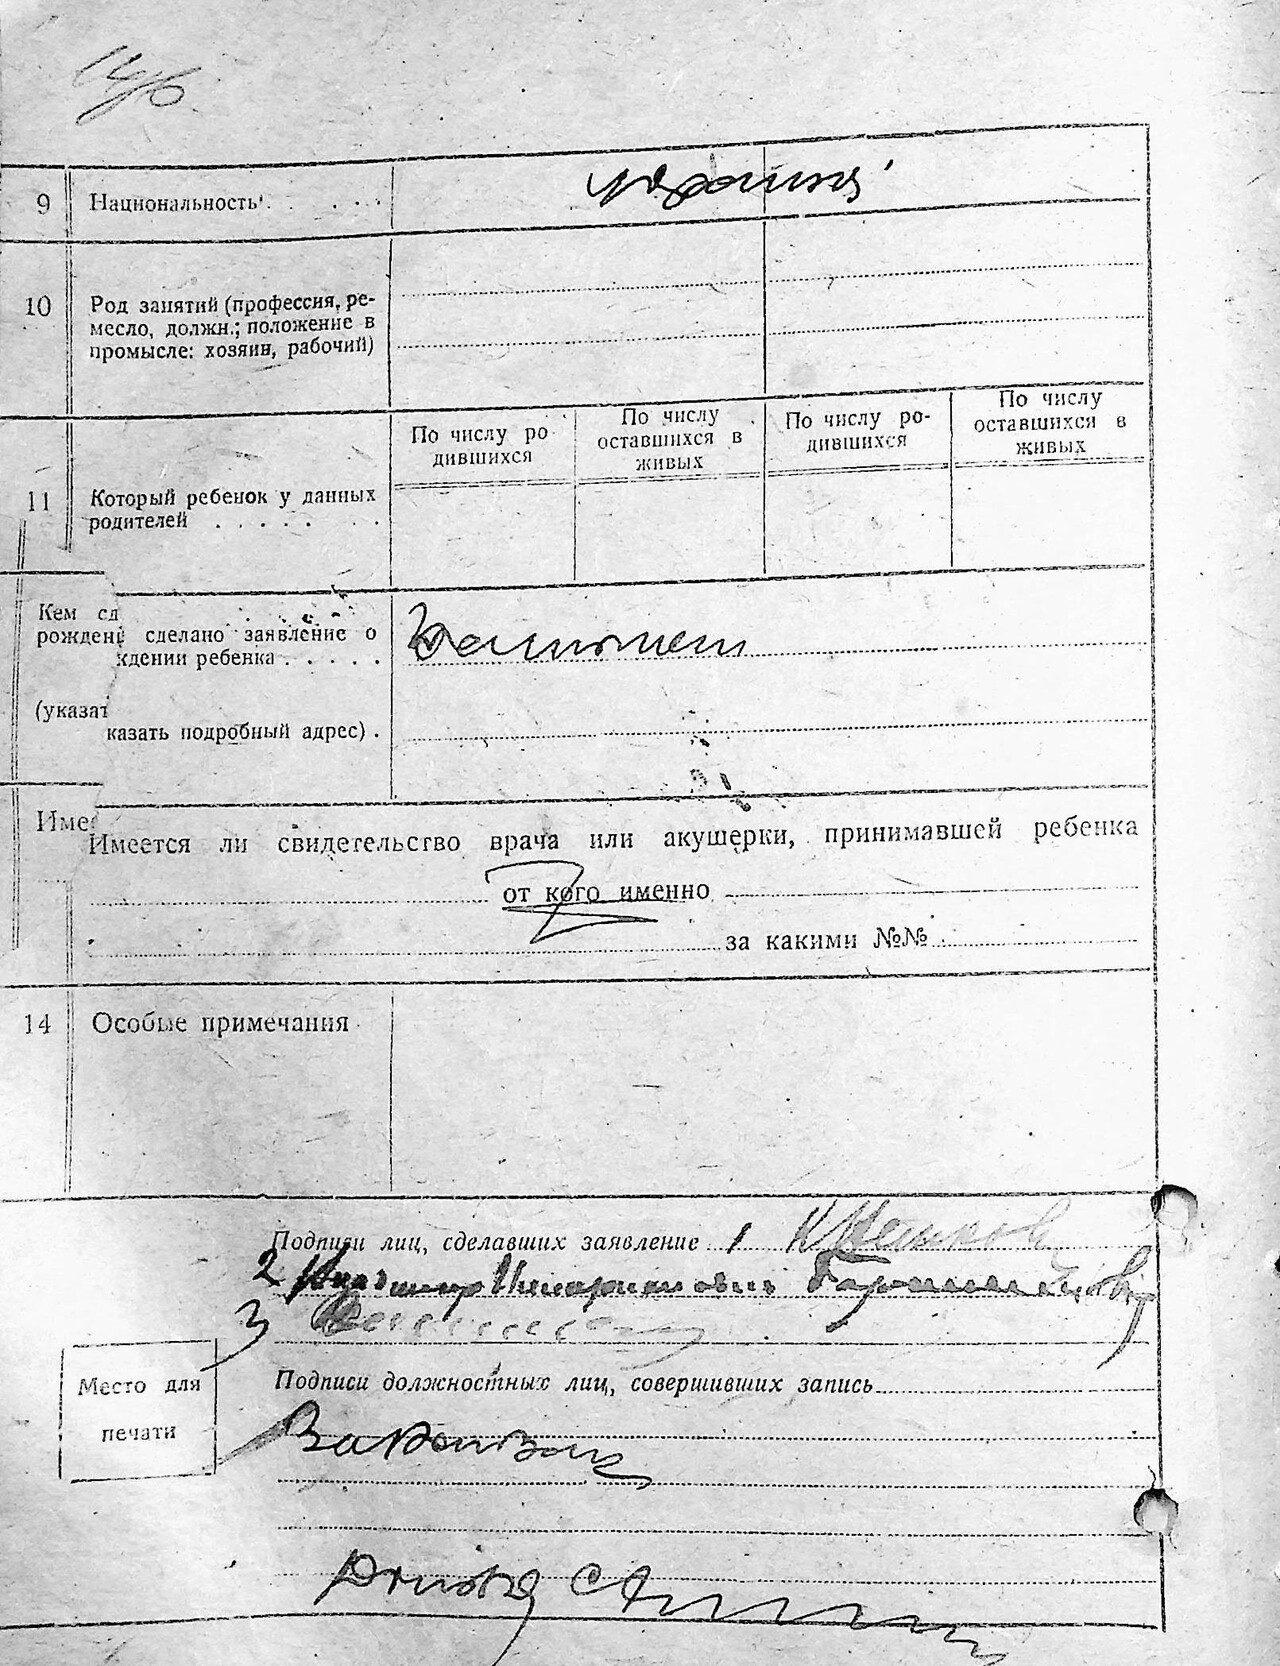 9 Национальность . . . . .
10 Род занятий (профессия, ре-
месло, должн.; положение в
промысле: хозяин, рабочий)
По числу ро
дившихся
По числу
оставшихся в
живых
По числу ро-
дившихся
По числу
оставшихся в
живых
11 Который ребенок у данных
родителей . . . . . . .
Кем сд
рождени сделано заявление о
ждении ребенка . . . . .
(указат
казать подробный адрес) .
Име
Имеется ли свидетельство врача или акушерки, принимавшей ребенка
от кого именно
за какими №№
14 Особые примечания
Подписи лиц, сделавших заявление 1
2 Владимир
3
Место для
печати
Подписи должностных лиц, совершивших запись